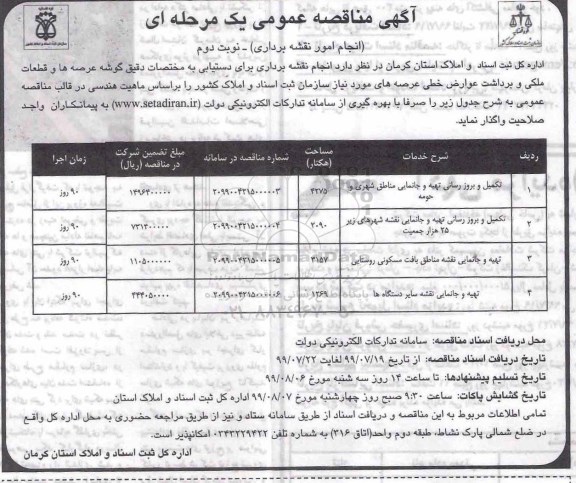 آگهی مناقصه عمومی یک مرحله ای
(انجام امور نقشه برداری) ـ نوبت دوم
اداره کل ثبت اسناد و املاک استان کرمان در نظر دارد انجام نقشه برداری برای دستیابی به مختصات دقیق گوشه عرصه ها و قطعات
ملکی و برداشت عوارض خطی عرصه های مورد نیاز سازمان ثبت اسناد و املاک کشور را براساس ماهیت هندسی در قالب مناقصه
عمومی به شرح جدول زیر را صرفا با بهره گیری از سامانه تدارکات الکترونیکی دولت (www.setadiran.ir) به پیمانکاران واجد
صلاحیت واگذار نماید.
ردیف شرح خدمات مساحت (هکتار) شماره مناقصه در سامانه مبلغ تضمین شرکت در مناقصه (ریال) زمان اجرا
۱ تکمیل و بروز رسانی تهیه و جانمایی مناطق شهری و حومه ۴۲۷۵ ۲۰۹۹۰۰۴۳۱۵۰۰۰۰۰۳ ۱۴۹۶۴۰۰۰۰۰ ۹۰ روز
۲ تکمیل و بروز رسانی تهیه و جانمایی نقشه شهرهای زیر ۲۵ هزار جمعیت ۲۰۹۰ ۲۰۹۹۰۰۴۳۱۵۰۰۰۰۰۴ ۷۳۱۴۰۰۰۰۰ ۹۰ روز
۳ تهیه و جانمایی نقشه مناطق بافت مسکونی روستایی ۳۱۵۷ ۲۰۹۹۰۰۴۳۱۵۰۰۰۰۰۵ ۱۱۰۵۰۰۰۰۰۰ ۹۰ روز
۴ تهیه و جانمایی نقشه سایر دستگاه ها ۱۲۶۹ ۲۰۹۹۰۰۴۳۱۵۰۰۰۰۰۶ ۴۴۴۰۵۰۰۰۰ ۹۰ روز
محل دریافت اسناد مناقصه: سامانه تدارکات الکترونیکی دولت
تاریخ دریافت اسناد مناقصه: از تاریخ ۹۹/۰۷/۱۹ لغایت ۹۹/۰۷/۲۲
تاریخ تسلیم پیشنهادها: تا ساعت ۱۴ روز سه شنبه مورخ ۹۹/۰۸/۰۶
تاریخ گشایش پاکات: ساعت ۹:۳۰ صبح روز چهارشنبه مورخ ۹۹/۰۸/۰۷ اداره کل ثبت اسناد و املاک استان
تمامی اطلاعات مربوط به این مناقصه و دریافت اسناد از طریق سامانه ستاد و نیز از طریق مراجعه حضوری به محل اداره کل واقع
در ضلع شمالی پارک نشاط، طبقه دوم واحد(اتاق ۳۱۶) به شماره تلفن ۰۳۴۳۲۲۹۴۲۲ امکانپذیر است.
اداره کل ثبت اسناد و املاک استان کرمان